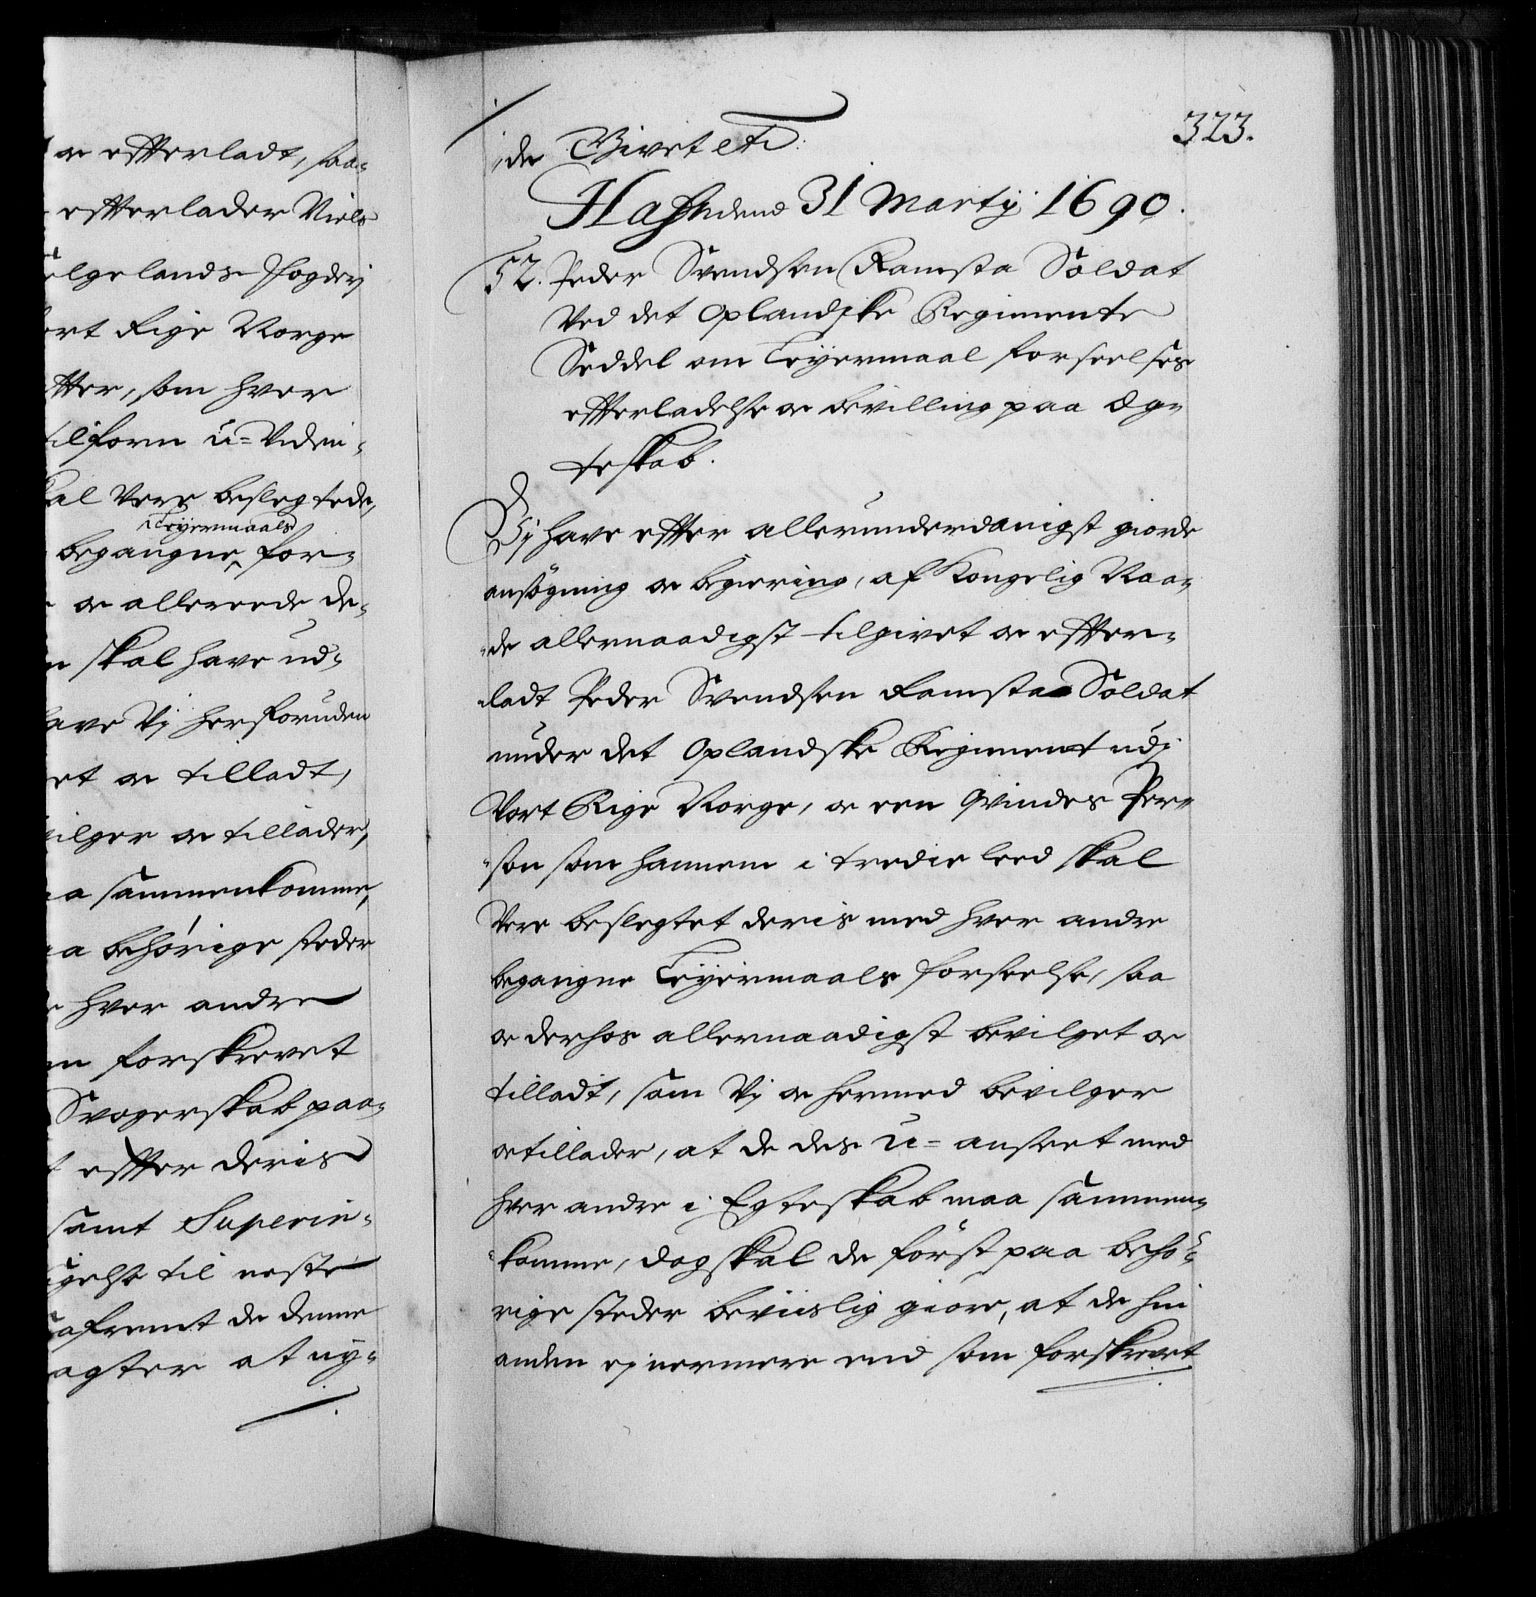 oc efterladt, saa-
efterlader Niels
elgelands Fogderj
ort Rige Norge
tter, som hver
tilforn u-Viden-
kal Vere beslegtede,
Leyermaals
begangne for-
oc allereede de-
n skal have ud-
have Vj herforuden
et oc tilladt,
vilger oc tillader,
aa sammenkomme,
aa behörige steder
hver andre
m forskrevet
Svogerskab paa-
t efter deris
samt Superin-
igelse til neste
saafremt de denne
agter at ny-
323.
;de Givet etc:
Hafn den 31 Martij 1690.
52. Peder Svendsen Ramsta Soldat
Ved det Oplandske Regimente
Seddel om Leyermaal forseelses
efterladelse oc bevilling paa Ægt-
teskab.
Vj have efter allerunderdanigst giorde
ansögning oc begiering, af Kongelig Naa-
de allernaadigst tilgivet oc efter-
ladt Peder Svendsen Ramsta Soldat
under det Oplandske Regiment udj
Vort Rige Norge, oc een Qvindes Per-
son som hannem i tredie leed skal
Vere beslegtet deris med hver andre
begangne Leyermaals forseelse, saa
oc derhos allernaadigst bevilget oc
tilladt, som Vj oc hermed bevilger
oc tillader, at de des u-anseet med
hver andre i Egteskab maa sammen-
komme, dog skal de först paa behö-
rige steder beviislig giöre, at de hin
anden ej nermere end som forskrevet